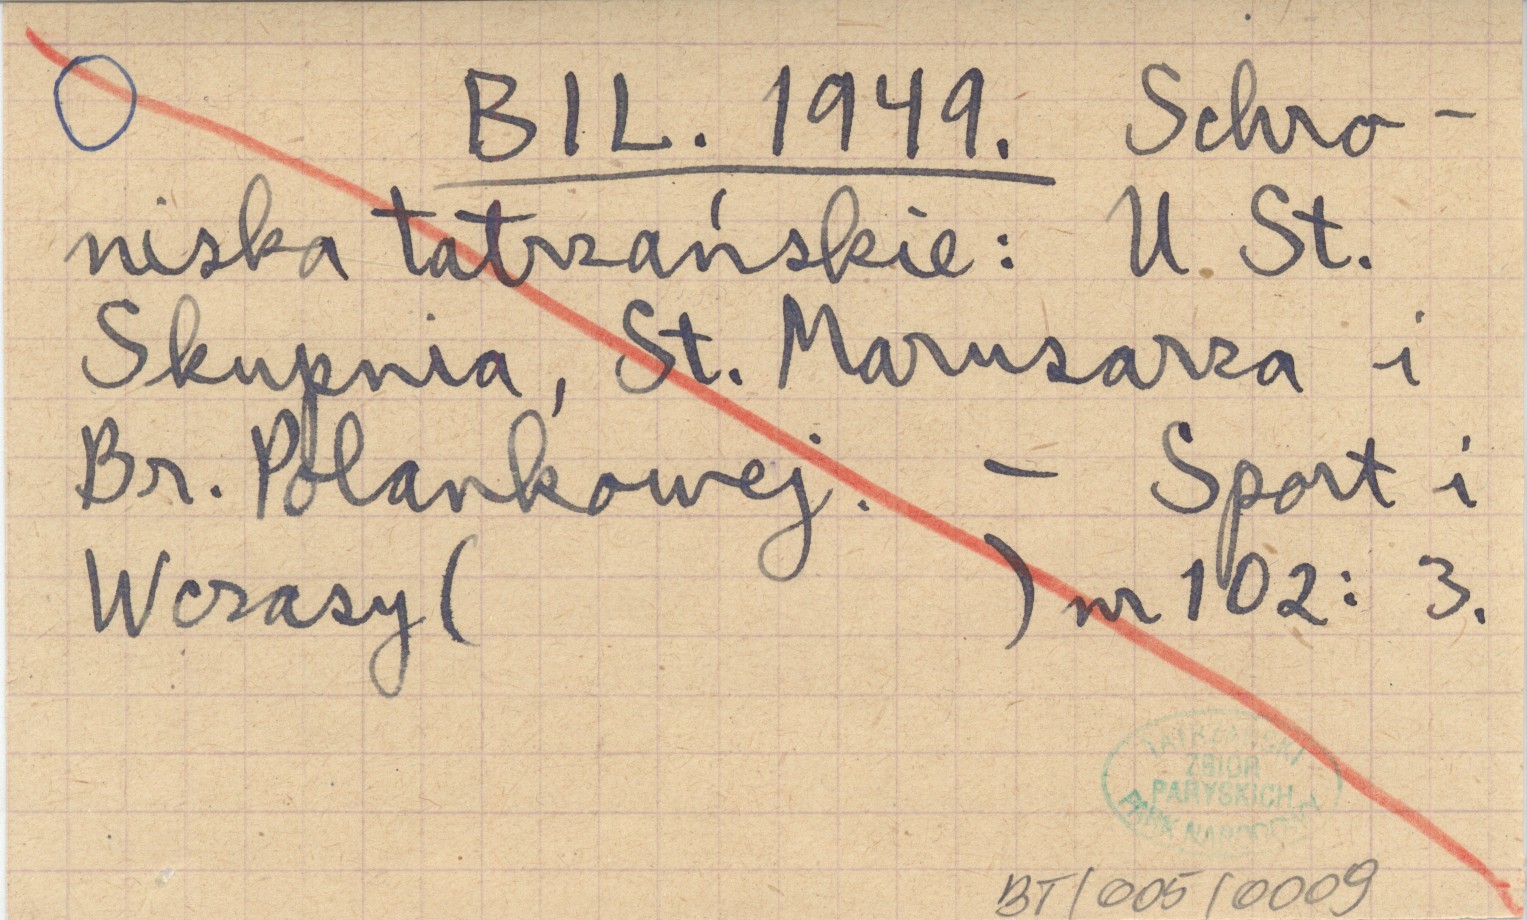 BIL. 1949. Schro-
niska tatrzańskie: U St.
Skupnia, St. Marusarza i
Br. Polankowej. - Sport i
Wczasy (          ) nr 102: 3.
TATRZAŃSKI
ZBIÓR
PARYSKICH
PARK NARODOWY
BT/005/0009